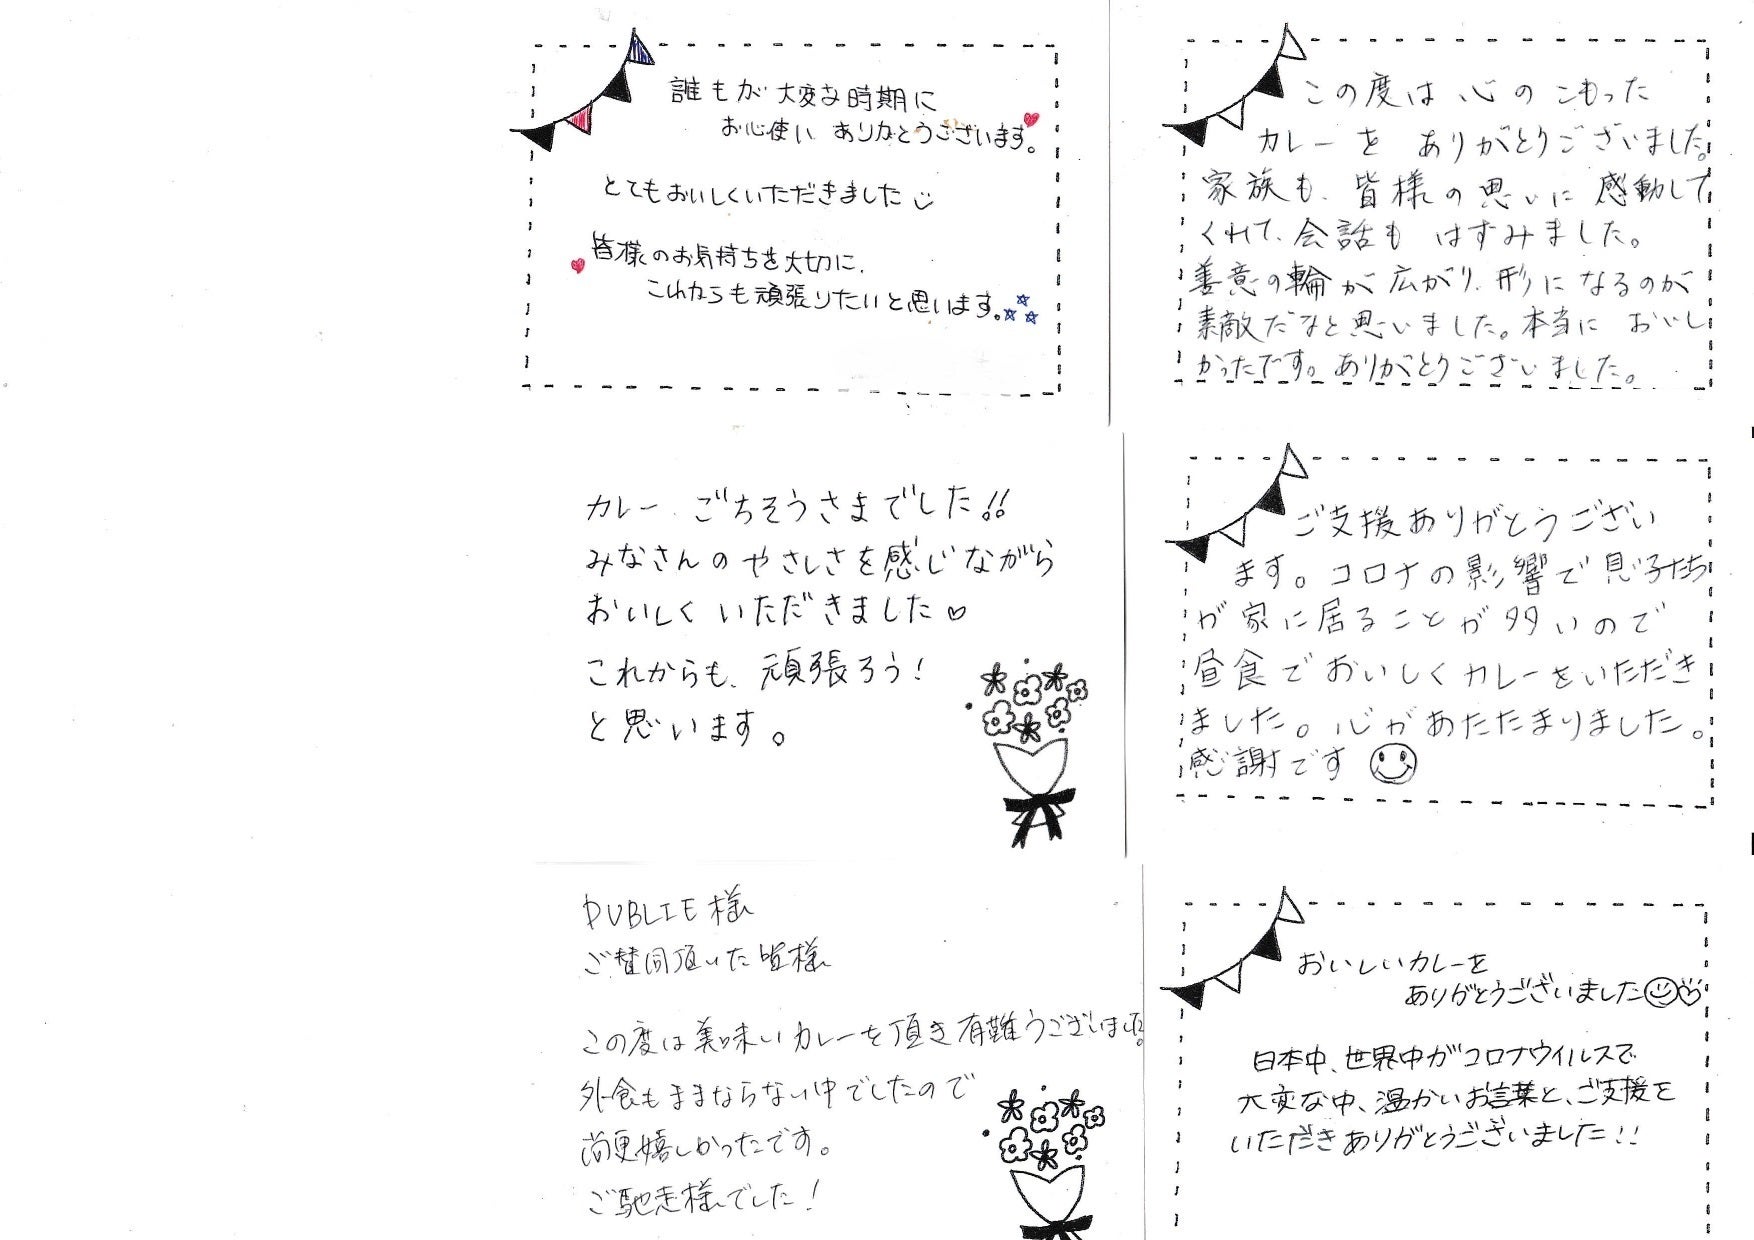 誰もが大変な時期に
お心使い ありがとうございます。
とてもおいしくいただきました
皆様のお気持ちを大切に、
これからも頑張りたいと思います。
この度は心のこもった
カレーを ありがとうございました。
家族も、皆様の思いに感動して
くれて、会話も はずみました。
善意の輪が広がり、形になるのが
素敵だなと思いました。本当に おいし
かったです。ありがとうございました。
カレー、ごちそうさまでした!!
みなさんのやさしさを感じながら
おいしく いただきました♡
これからも、頑張ろう!
と思います。
ご支援ありがとうござい
ます。コロナの影響で息子たち
が家に居ることが多いので
昼食でおいしくカレーをいただき
ました。心があたたまりました。
感謝です
PUBLIE様
ご賛同頂いた皆様
この度は美味いカレーを頂き有難うございました。
外食もままならない中でしたので
尚更嬉しかったです。
ご馳走様でした!
おいしいカレーを
ありがとうございました
日本中、世界中がコロナウイルスで
大変な中、温かいお言葉と、ご支援を
いただきありがとうございました!!